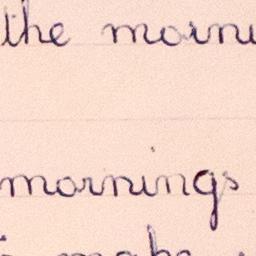 the morni
mornings
make